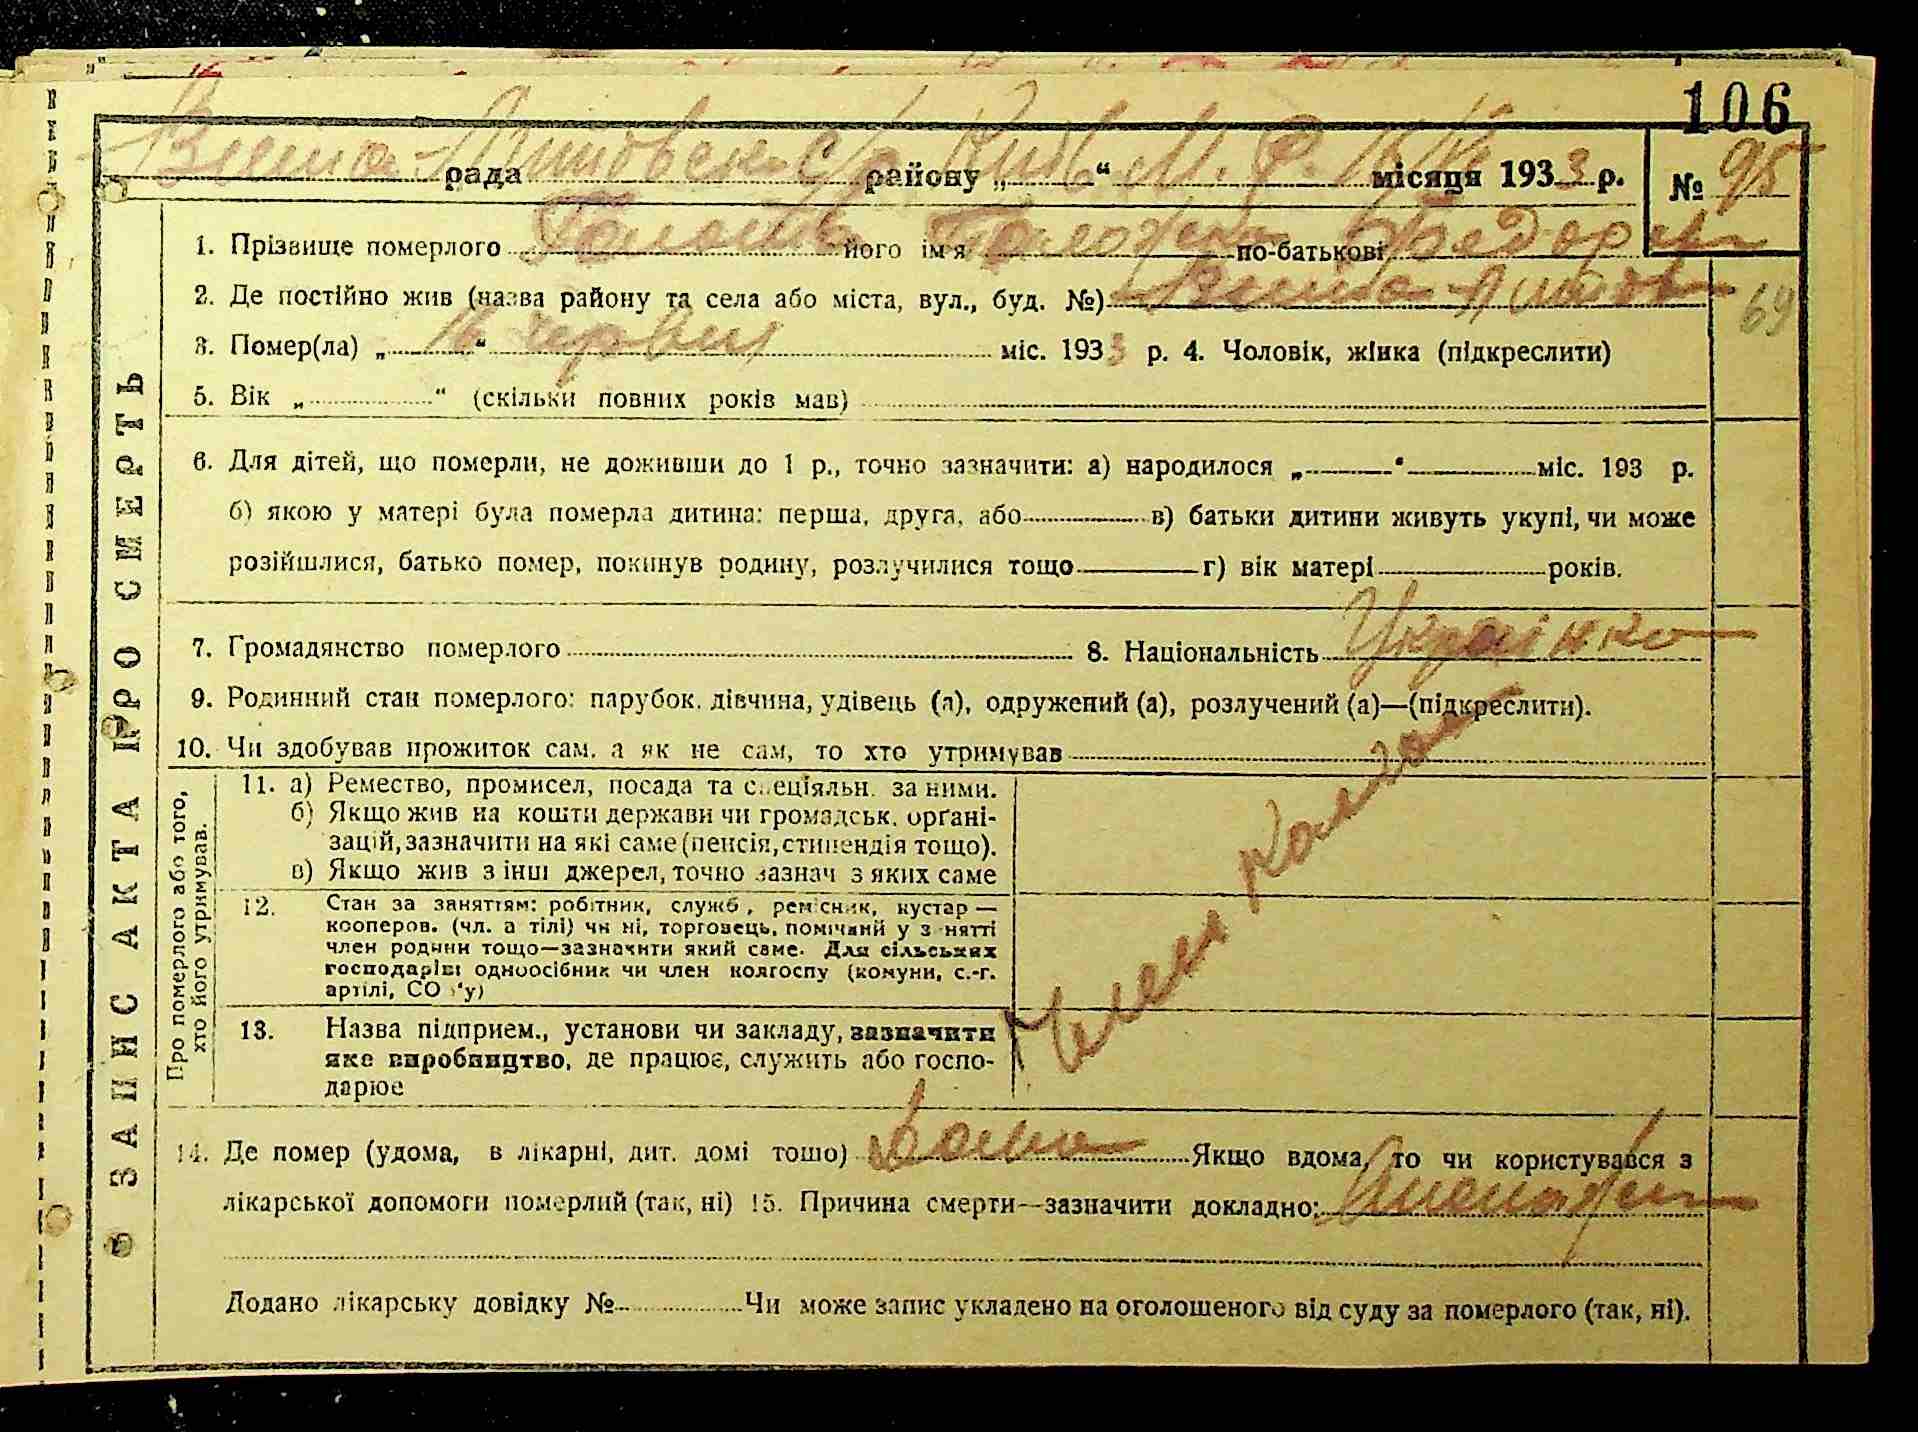 106
рада району „ “ місяця 1933 р. № 95
1. Прізвище померлого його ім'я по-батькові
2. Де постійно жив (назва району та села або міста, вул., буд. №)
69
3. Помер(ла) „16“ червня міс. 1933 р. 4. Чоловік, жінка (підкреслити)
5. Вік „ “ (скільки повних років мав)
6. Для дітей, що померли, не доживши до 1 р., точно зазначити: а) народилося „ “ міс. 193 р.
б) якою у матері була померла дитина: перша, друга, або в) батьки дитини живуть укупі, чи може
розійшлися, батько помер, покинув родину, розлучилися тощо г) вік матері років.
7. Громадянство померлого 8. Національність Українка
9. Родинний стан померлого: парубок, дівчина, удівець (а), одружений (а), розлучений (а)—(підкреслити).
10. Чи здобував прожиток сам, а як не сам, то хто утримував
Про померлого або того,
хто його утримував.
11. а) Ремество, промисел, посада та спеціяльн. за ними.
б) Якщо жив на кошти держави чи громадськ. органі-
зацій, зазначити на які саме (пенсія, стипендія тощо).
в) Якщо жив з інш джерел, точно зазнач з яких саме
12. Стан за заняттям: робітник, служб, ремісник, кустар —
кооперов. (чл. артілі) чи ні, торговець, помічний у занятті
член родини тощо—зазначити який саме. Для сільських
господарів: одноосібник чи член колгоспу (комуни, с.-г.
артілі, СОЗ'у)
13. Назва підприєм., установи чи закладу, зазначити
яке виробництво, де працює, служить або госпо-
дарює
Член колгос
14. Де помер (удома, в лікарні, дит. домі тошо) Дома Якщо вдома, то чи користувався з
лікарської допомоги померлий (так, ні) 15. Причина смерти—зазначити докладно:
Додано лікарську довідку № Чи може запис укладено на оголошеного від суду за померлого (так, ні).
ЗАПИС АКТА ПРО СМЕРТЬ